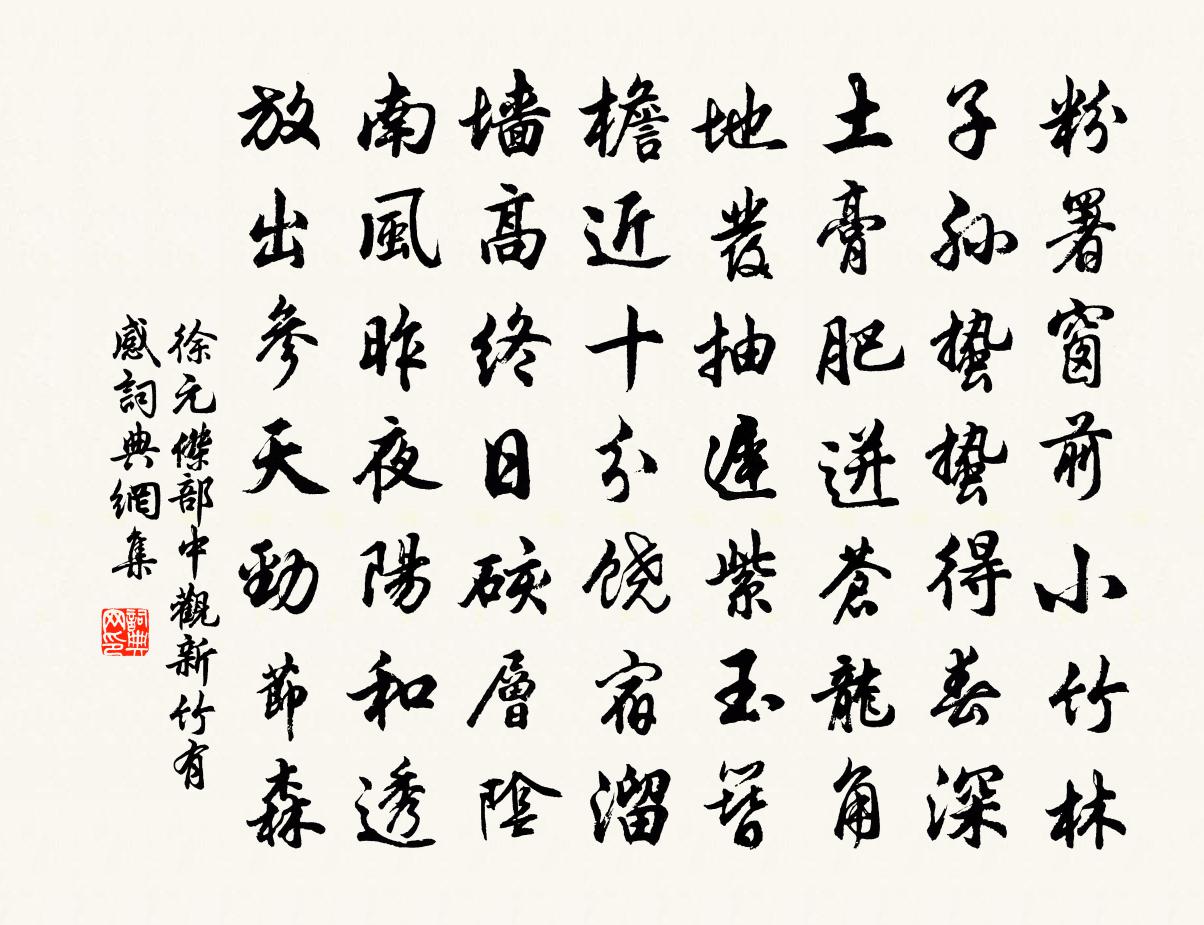 粉署窗前小竹林
子孙蟄蟄得春深
土膏肥迸蒼龍角
地發抽遲紫玉簪
檐近十分饶宿溜
墙高終日硋層陰
南風昨夜陽和透
放出參天勁節森
徐元傑部中觀新竹有
感詞典網集
詞典网印